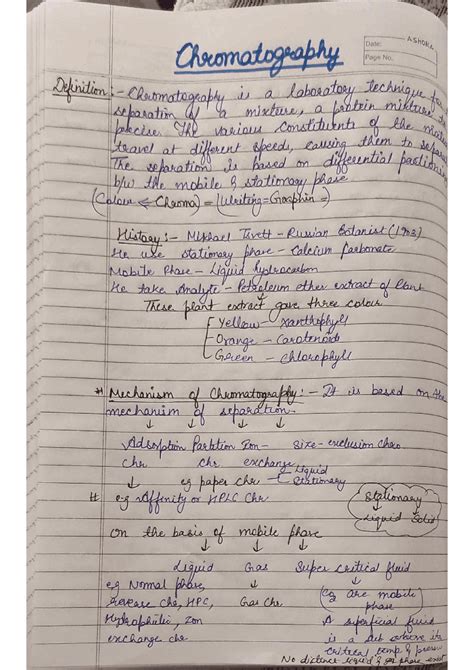 Date: ASHOKA
Page No.
Chromatography
Definition :- Chromatography is a laboratory technique for
separation of a mixture, a protein mixture to
precise. The various constituents of the
travel at different speeds, causing them to
The separation is based on differential
b/w the mobile & stationary phase
(Colour ← Chroma) = (Writing = Graphin =)
History :- Mikhael Tsvett - Russian Botanist (1903)
He use stationary phase - Calcium Carbonate
Mobite Phase - Liquid hydrocarbon
He take Analyte - Petroleum ether extract of Plant
These plant extract gave three colour
Yellow - Xanthophyll
Orange - Carotenoids
Green - Chlorophyll
# Mechanism of Chromatography :- It is based on the
mechanim of separation.
Adsorption Partition Ion - Size-exclusion Chro.
Chr. chr exchange
eg paper chr Liquid Stationary
# e.g Affinity or HPLC Chr
Stationary
Liquid Solid
On the basis of mobile phase
Liquid Gas Super critical fluid
eg Normal phase, (eg are mobile
Reverse Chr, HPC, Gas Chr phase
Hydrophilic, Ion A superficial fluid
exchange chr is a where its
critical temp & press
No distance liquid & gas phase exist